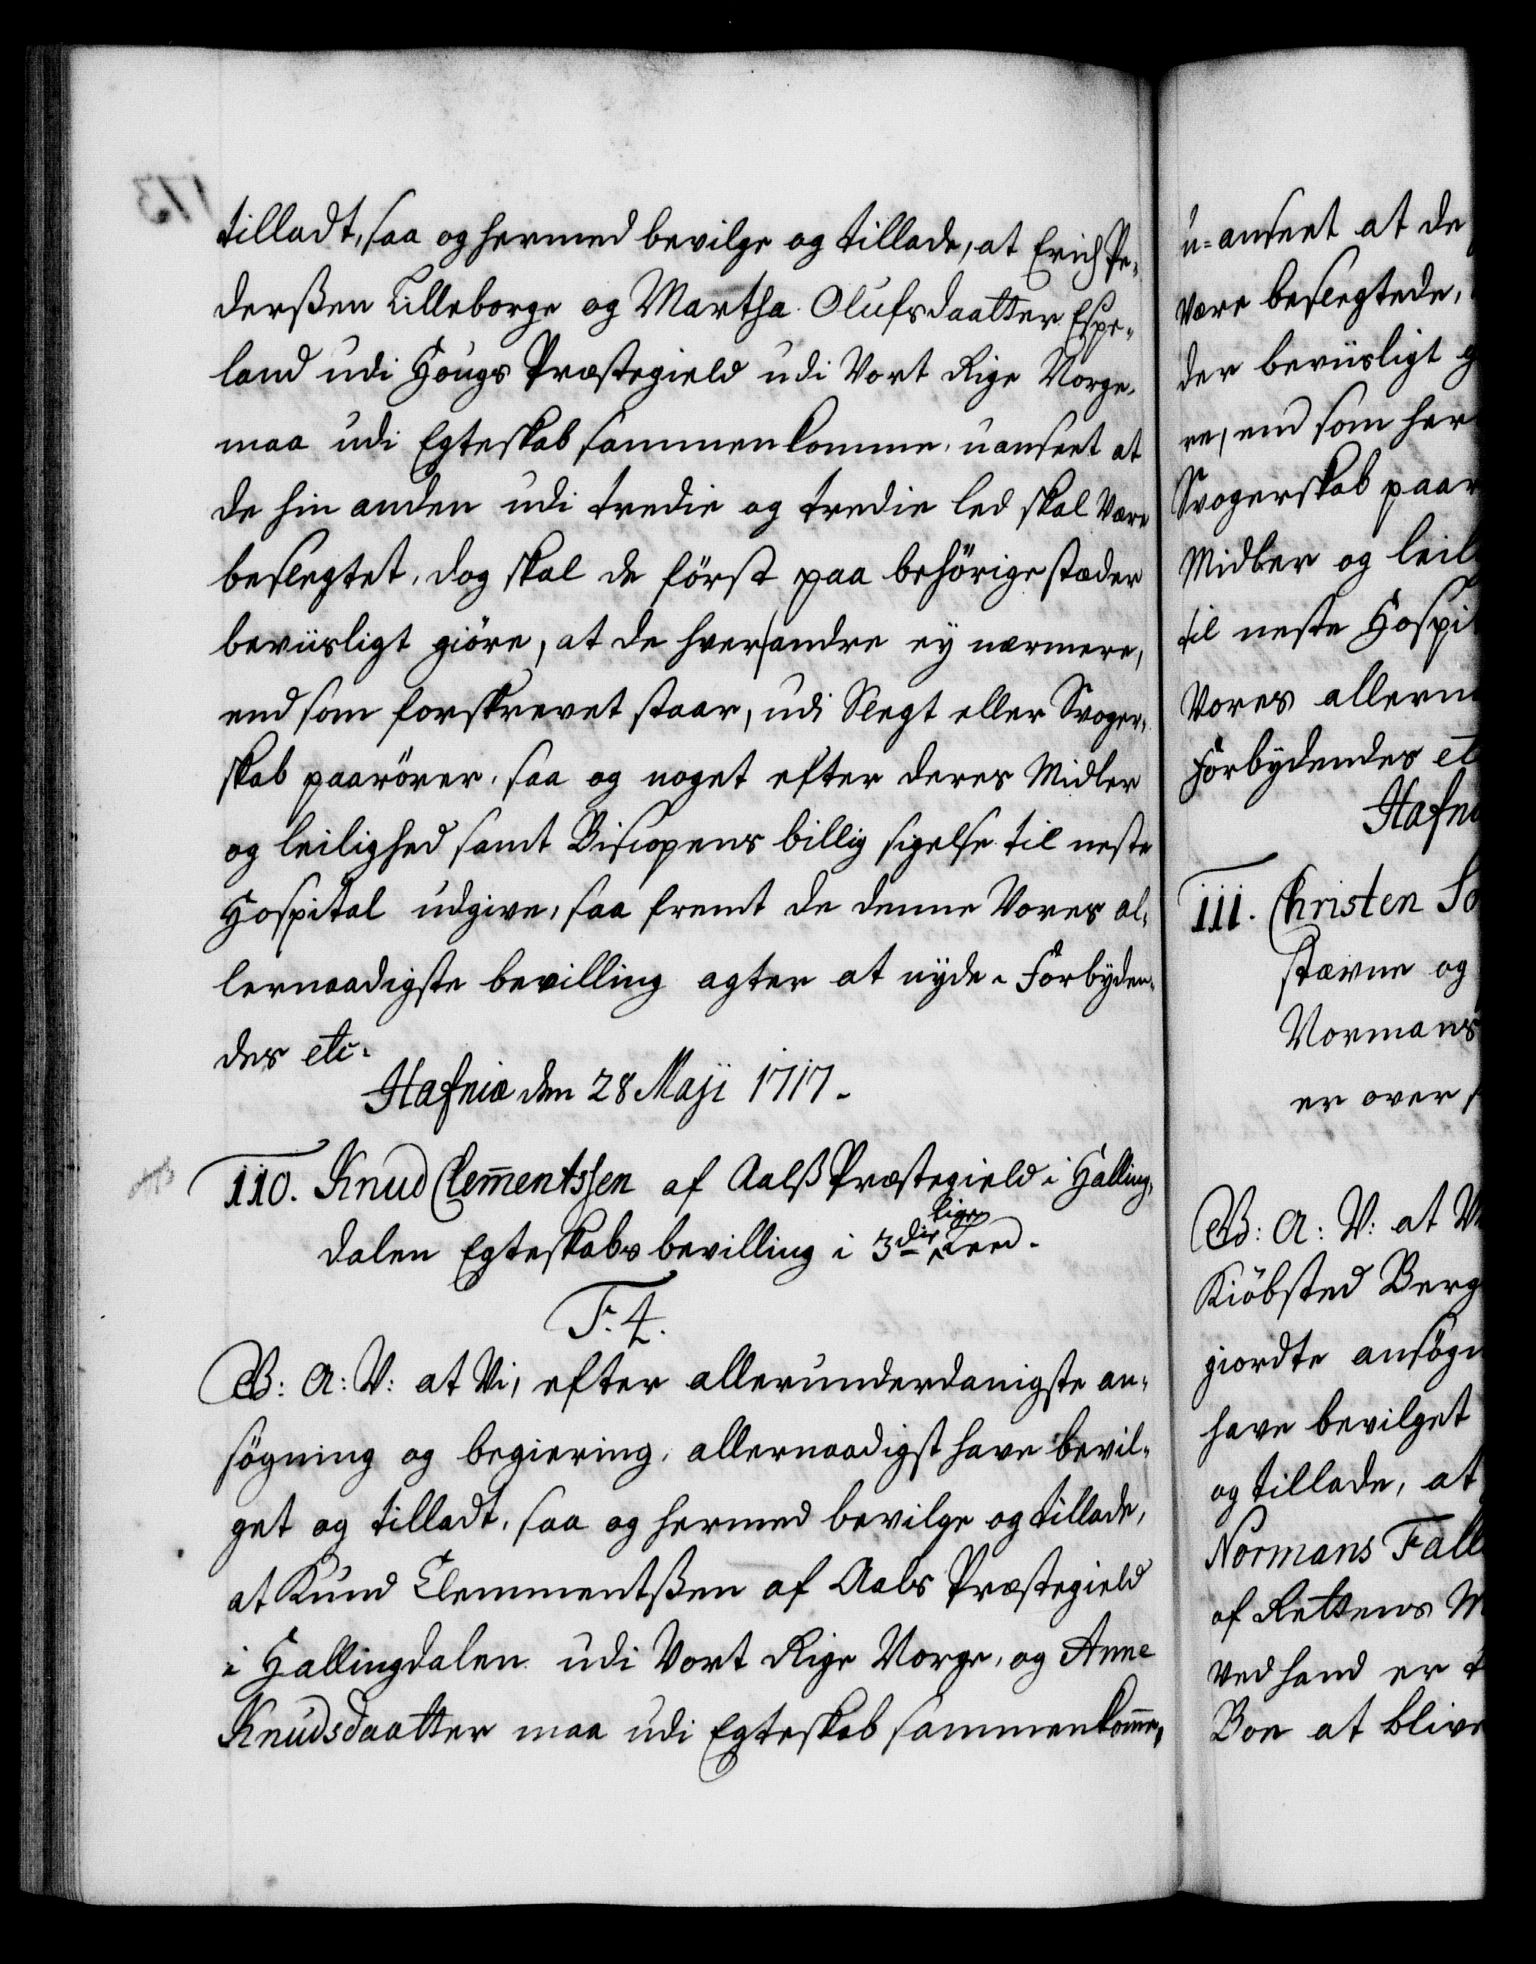 tilladt, saa og hermed bevilge og tillade, at Erich Pe-
derßen Lilleborge og Martha Olufsdaatter Espe-
land udi Hougs Præstegield udi Vort Rige Norge,
maa udi Egteskab sammenkomme, uanseet at
de hin anden udi tredie og tredie led skal være
beslegtet, dog skal de först paa behörige stæder
beviisligt giöre, at de hver andre ey nærmere,
end som forskrevet staar, udi Slegt eller Svoger-
skab paarörer, saa og noget efter deres Midler
og leilighed samt Biscopens billig sigelse til neste
Hospital udgive, saa fremt de denne Vores al-
lernaadigste bevilling agter at nyde. Forbyden-
des etc.
Hafniæ den 28 Maji 1717.
110. Knud Clem̅entssen af Aalß Præstegield i Halling-
dalen Egteskabs bevilling i 3die lige Leed.
F. 4.
G: A: V: at Vi, efter allerunderdanigste an-
sögning og begiering, allernaadigst have bevil-
get og tilladt, saa og hermed bevilge og tillade,
at Knud Clemmentßen af Aals Præstegield
i Hallingdalen udi Vort Rige Norge, og Anne
Knudsdaatter maa udi Egteskab sammenkom̅e,
u-anseet at de
være beslegtede,
der beviisligt g
re, end som her
Svogerskab paar
Midler og leil
til neste Hospit
Vores allern
Forbydendes etc
Hafni
111. Christen So
stævne og
Normans
er over
G: A: V: at V
Kiöbsted Berg
giordte ansögn
have bevilget
og tillade, at
Normans Fall
af Rettens M
ved hand er
Boe at blive